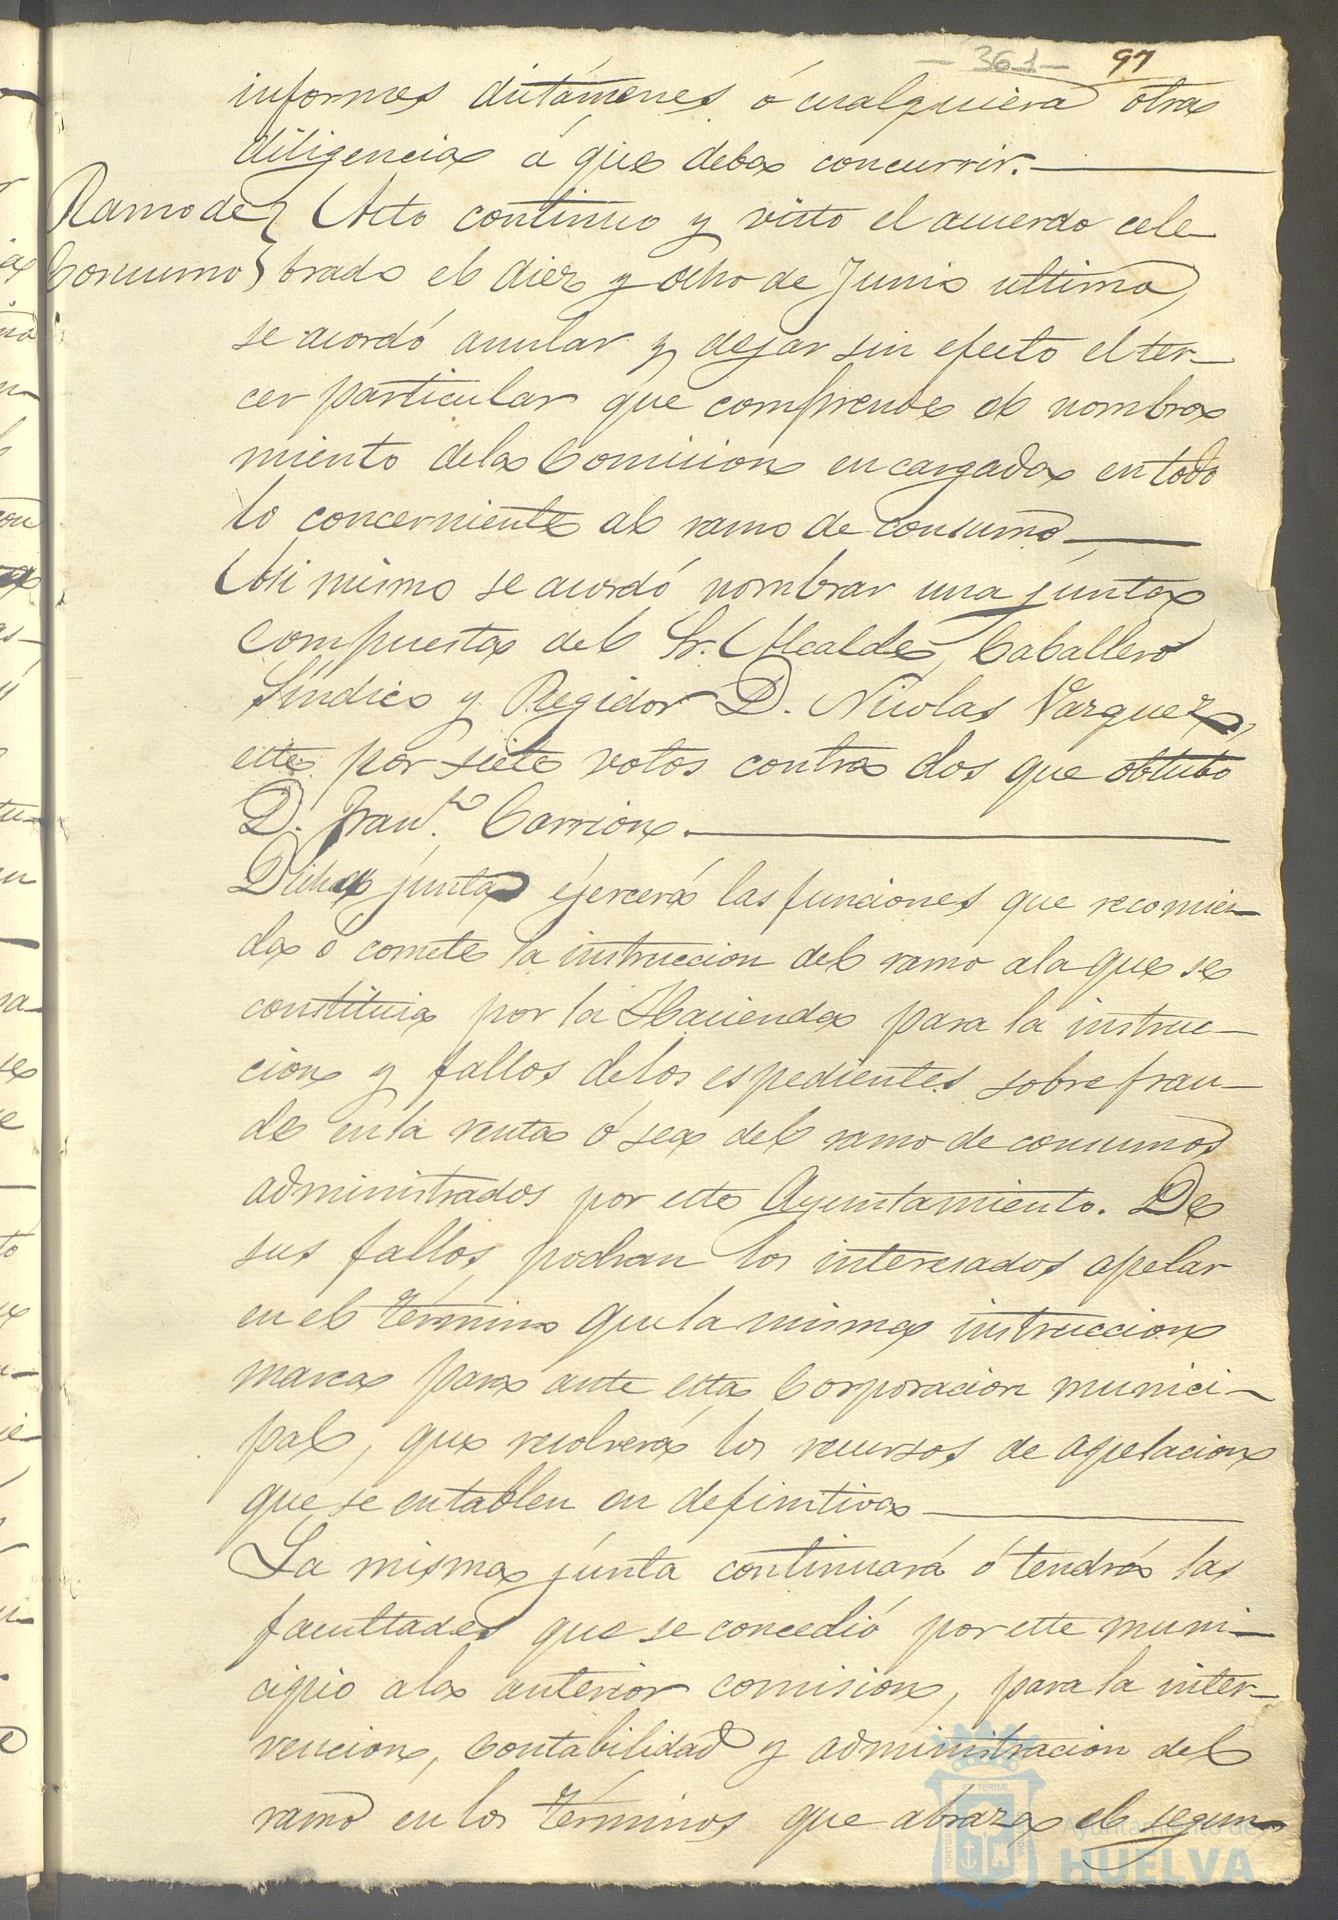 - 361 - 97
informes dictámenes ó cualquiera otra
diligencia á que deba concurrir.
Ramo de
Consumo
Acto continuo y visto el acuerdo cele
brado el diez y ocho de Junio ultimo,
se acordó anular y dejar sin efecto el ter-
cer particular que comprende el nombra
miento de la Comision encargada en todo
lo concerniente al ramo de consumo
Asi mismo se acordó nombrar una junta
compuesta del Sr. Alcalde, Caballero
Síndico y Regidor D. Nicolas Vazquez,
este por siete votos contra dos que obtubo
D. Franco. Carrion.
Dicha junta ejercerá las funciones que recomien-
da ó comete la instruccion del ramo a la que se
constituia por la Hacienda para la instruc-
cion y fallos de los espedientes sobre frau-
de en la renta ó sea del ramo de consumos
administrados por este Ayuntamiento. De
sus fallos podran los interesados apelar
en el término que la misma instruccion
marca para ante esta Corporacion munici-
pal, que resolverá los recursos de apelacion
que se entablen en definitiva
La misma junta continuará ó tendrá las
facultades que se concedió por este muni-
cipio a la anterior comision, para la inter-
vencion, contabilidad y administracion del
ramo en los términos que abraza el segun-
Ayuntamiento de
HUELVA